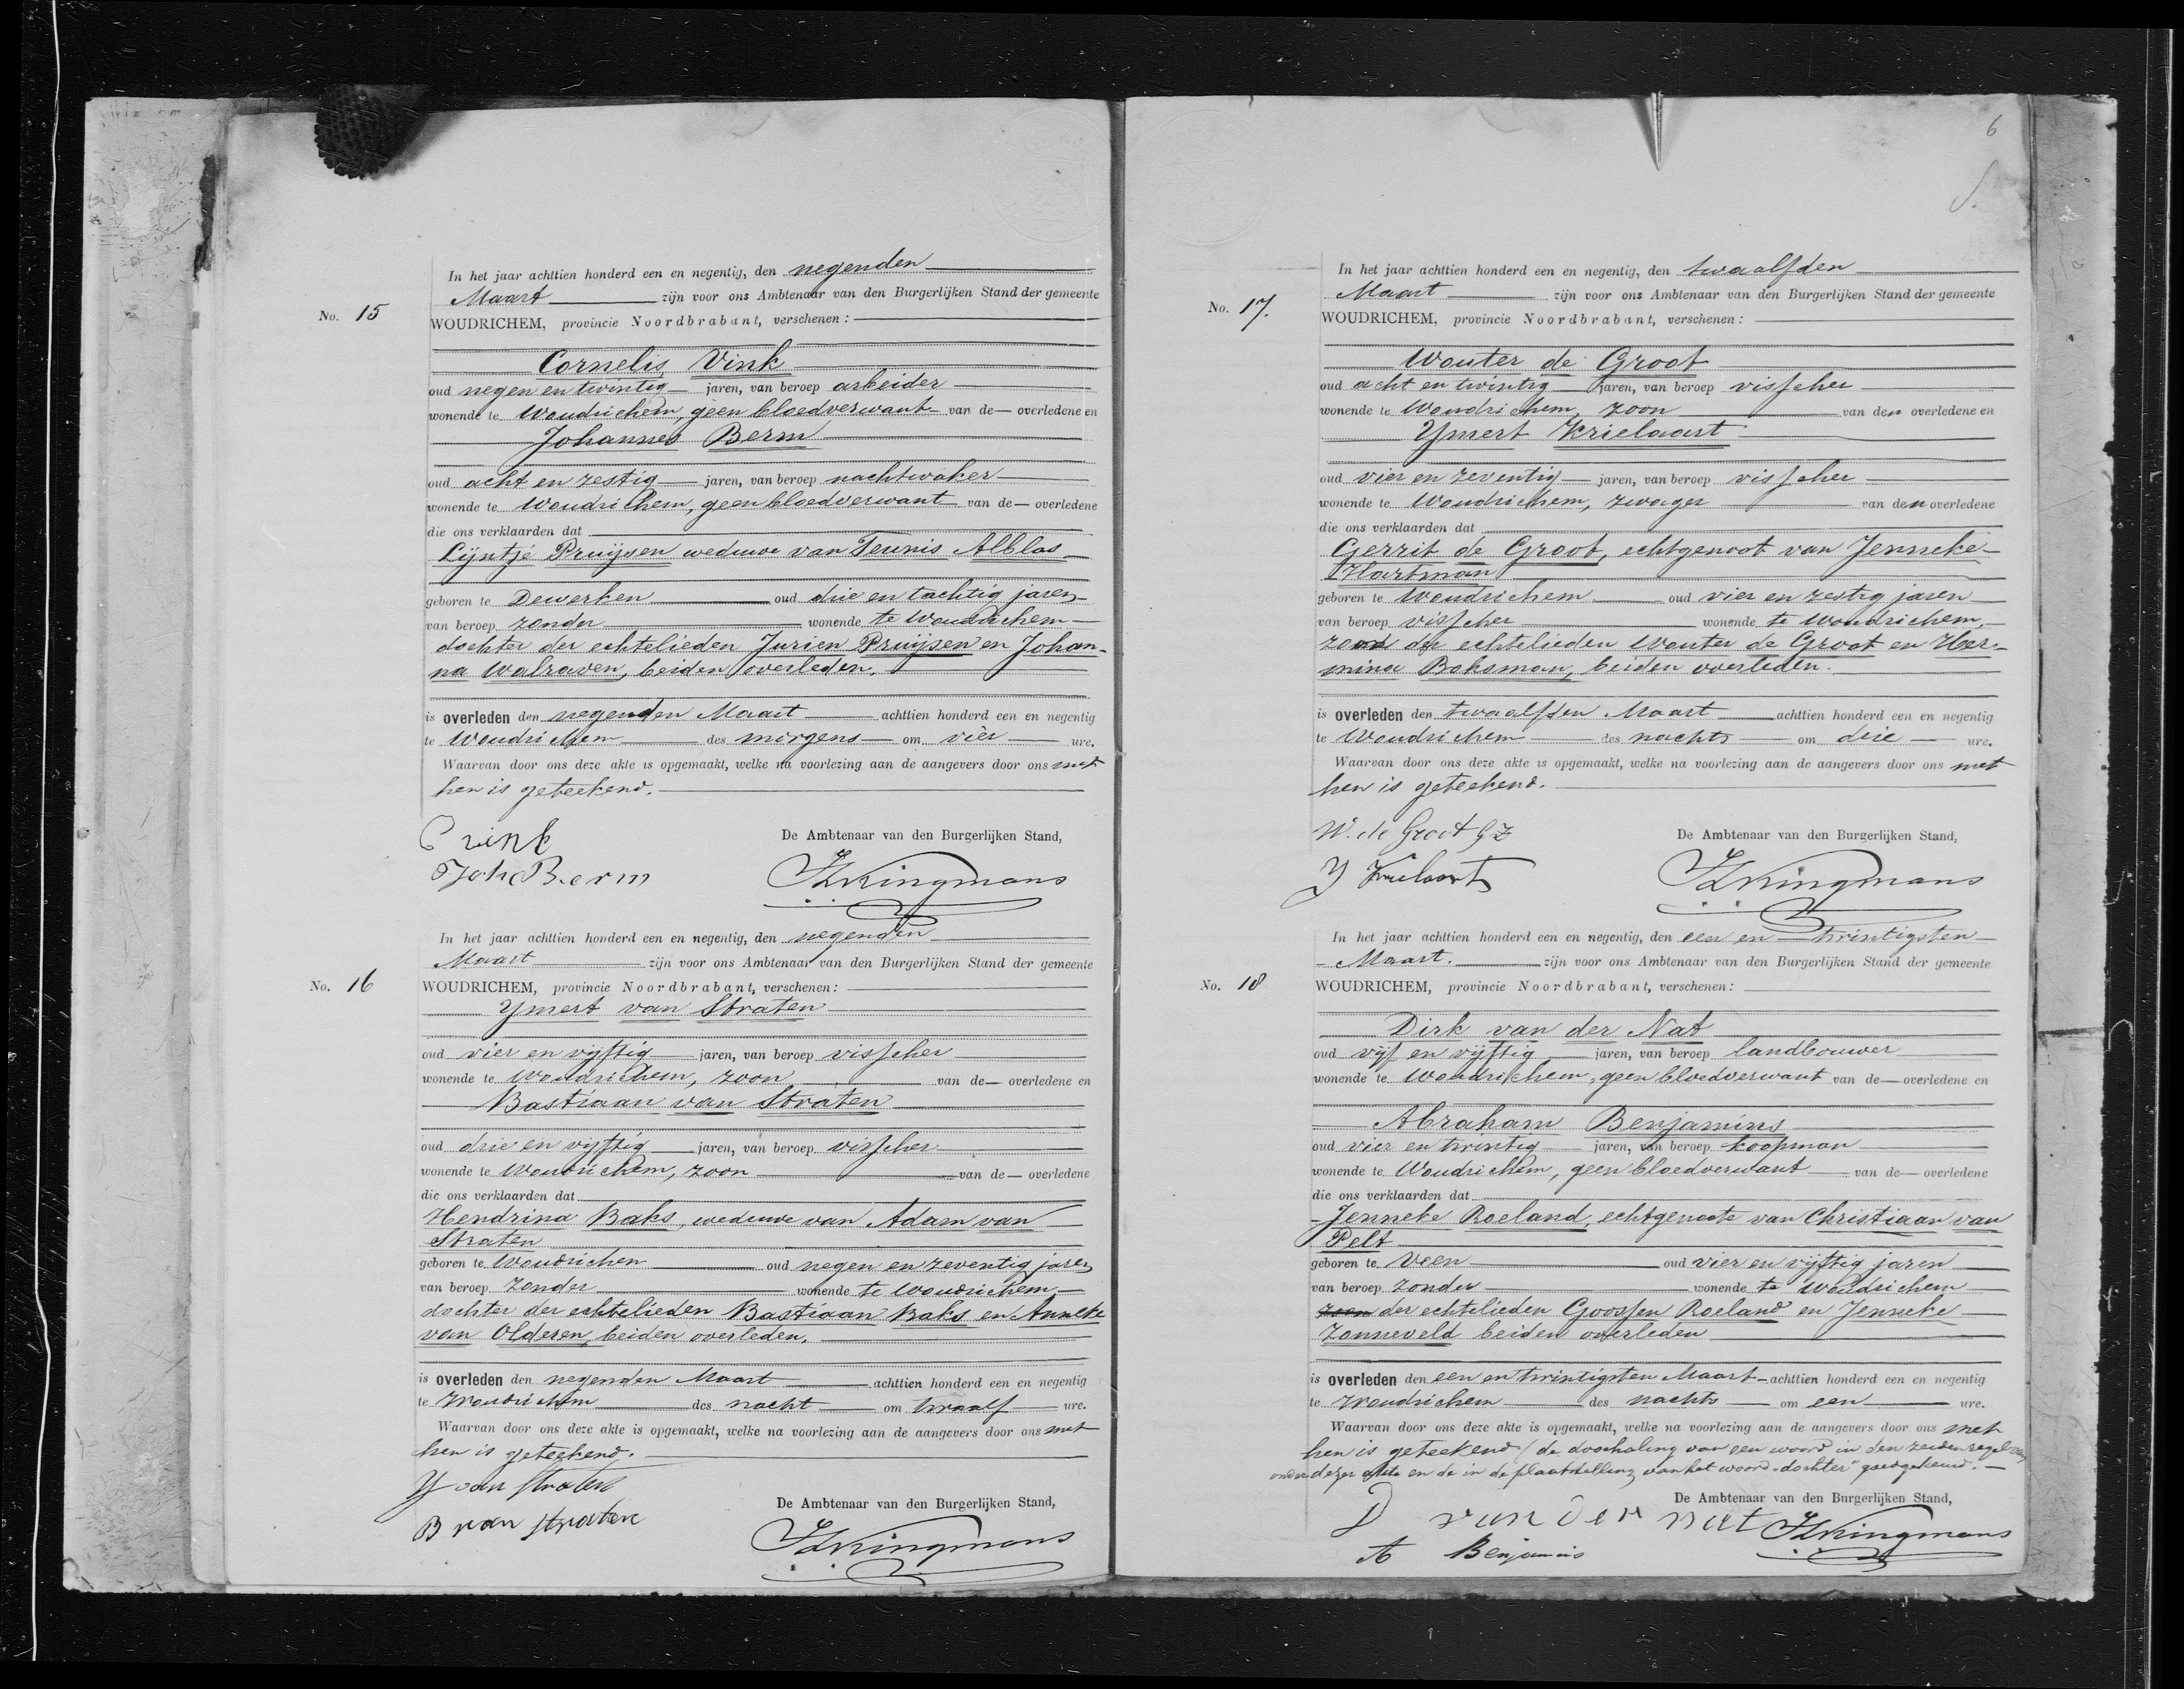 In het jaar achttien honderd een en negentig, den negenden
Maart zijn voor ons Ambtenaar van den Burgerlijken Stand der gemeente
No. 15 WOUDRICHEM, provincie Noordbrabant, verschenen:
Cornelis Vink
oud negen en twintig jaren, van beroep arbeider
wonende te Woudrichem, geen bloedverwant van de overledene en
Johannes Berm
oud acht en zestig jaren, van beroep nachtwaker
wonende te Woudrichem, geen bloedverwant van de overledene
die ons verklaarden dat
Lijntje Pruijsen weduwe van Teunis Alblas
geboren te Dewerken oud drie en tachtig jaren
van beroep zonder wonende te Woudrichem
dochter der echtelieden Jurien Pruijsen en Johan-
na Walraven, beiden overleden.
is overleden den negenden Maart achttien honderd een en negentig
te Woudrichem des morgens om vier ure.
Waarvan door ons deze akte is opgemaakt, welke na voorlezing aan de aangevers door ons met
hen is geteekend.
C Vink
De Ambtenaar van den Burgerlijken Stand,
Joh Berm
Kingmans
In het jaar achttien honderd een en negentig, den negenden
Maart zijn voor ons Ambtenaar van den Burgerlijken Stand der gemeente
No. 16 WOUDRICHEM, provincie Noordbrabant, verschenen:
Ymert van Straten
oud vier en vijftig jaren, van beroep visscher
wonende te Woudrichem, zoon van de overledene en
Bastiaan van Straten
oud drie en vijftig jaren, van beroep visscher
wonende te Woudrichem, zoon van de overledene
die ons verklaarden dat
Hendrina Baks, weduwe van Adam van
Straten
geboren te Woudrichem oud negen en zeventig jaren
van beroep zonder wonende te Woudrichem
dochter der echtelieden Bastiaan Baks en Anneke
van Olderen, beiden overleden.
is overleden den negenden Maart achttien honderd een en negentig
te Woudrichem des nacht om twaalf ure.
Waarvan door ons deze akte is opgemaakt, welke na voorlezing aan de aangevers door ons met
hen is geteekend.
Y van Straten
De Ambtenaar van den Burgerlijken Stand,
B van Straten
Kingmans
6
In het jaar achttien honderd een en negentig, den twaalfden
Maart zijn voor ons Ambtenaar van den Burgerlijken Stand der gemeente
No. 17. WOUDRICHEM, provincie Noordbrabant, verschenen:
Wouter de Groot
oud acht en twintig jaren, van beroep visscher
wonende te Woudrichem, zoon van den overledene en
Ymert Krielaart
oud vier en zeventig jaren, van beroep visscher
wonende te Woudrichem, zwager van den overledene
die ons verklaarden dat
Gerrit de Groot, echtgenoot van Jenneke
Hartman
geboren te Woudrichem oud vier en zestig jaren
van beroep visscher wonende te Woudrichem,
zoon der echtelieden Wouter de Groot en Her-
mina Boksman, beiden overleden.
is overleden den twaalfden Maart achttien honderd een en negentig
te Woudrichem des nachts om drie ure.
Waarvan door ons deze akte is opgemaakt, welke na voorlezing aan de aangevers door ons met
hen is geteekend.
W. de Groot GZ
De Ambtenaar van den Burgerlijken Stand,
Y Krielaart
Kingmans
In het jaar achttien honderd een en negentig, den een en twintigsten
Maart. zijn voor ons Ambtenaar van den Burgerlijken Stand der gemeente
No. 18 WOUDRICHEM, provincie Noordbrabant, verschenen:
Dirk van der Nat
oud vijf en vijftig jaren, van beroep landbouwer
wonende te Woudrichem, geen bloedverwant van de overledene en
Abraham Benjamins
oud vier en twintig jaren, van beroep koopman
wonende te Woudrichem, geen bloedverwant van de overledene
die ons verklaarden dat
Jenneke Roeland, echtgenoote van Christiaan van
Pelt
geboren te Veen oud vier en vijftig jaren
van beroep zonder wonende te Woudrichem
zoon der echtelieden Goossen Roeland en Jenneke
Zonneveld beiden overleden
is overleden den een en twintigsten Maart achttien honderd een en negentig
te Woudrichem des nachts om een ure.
Waarvan door ons deze akte is opgemaakt, welke na voorlezing aan de aangevers door ons met
hen is geteekend / de doorhaling van een woord in den regel van
onder dezer akte en de in de plaatstelling van het woord "dochter" goedgekeurd.
De Ambtenaar van den Burgerlijken Stand,
D van der nat Kingmans
A Benjamins